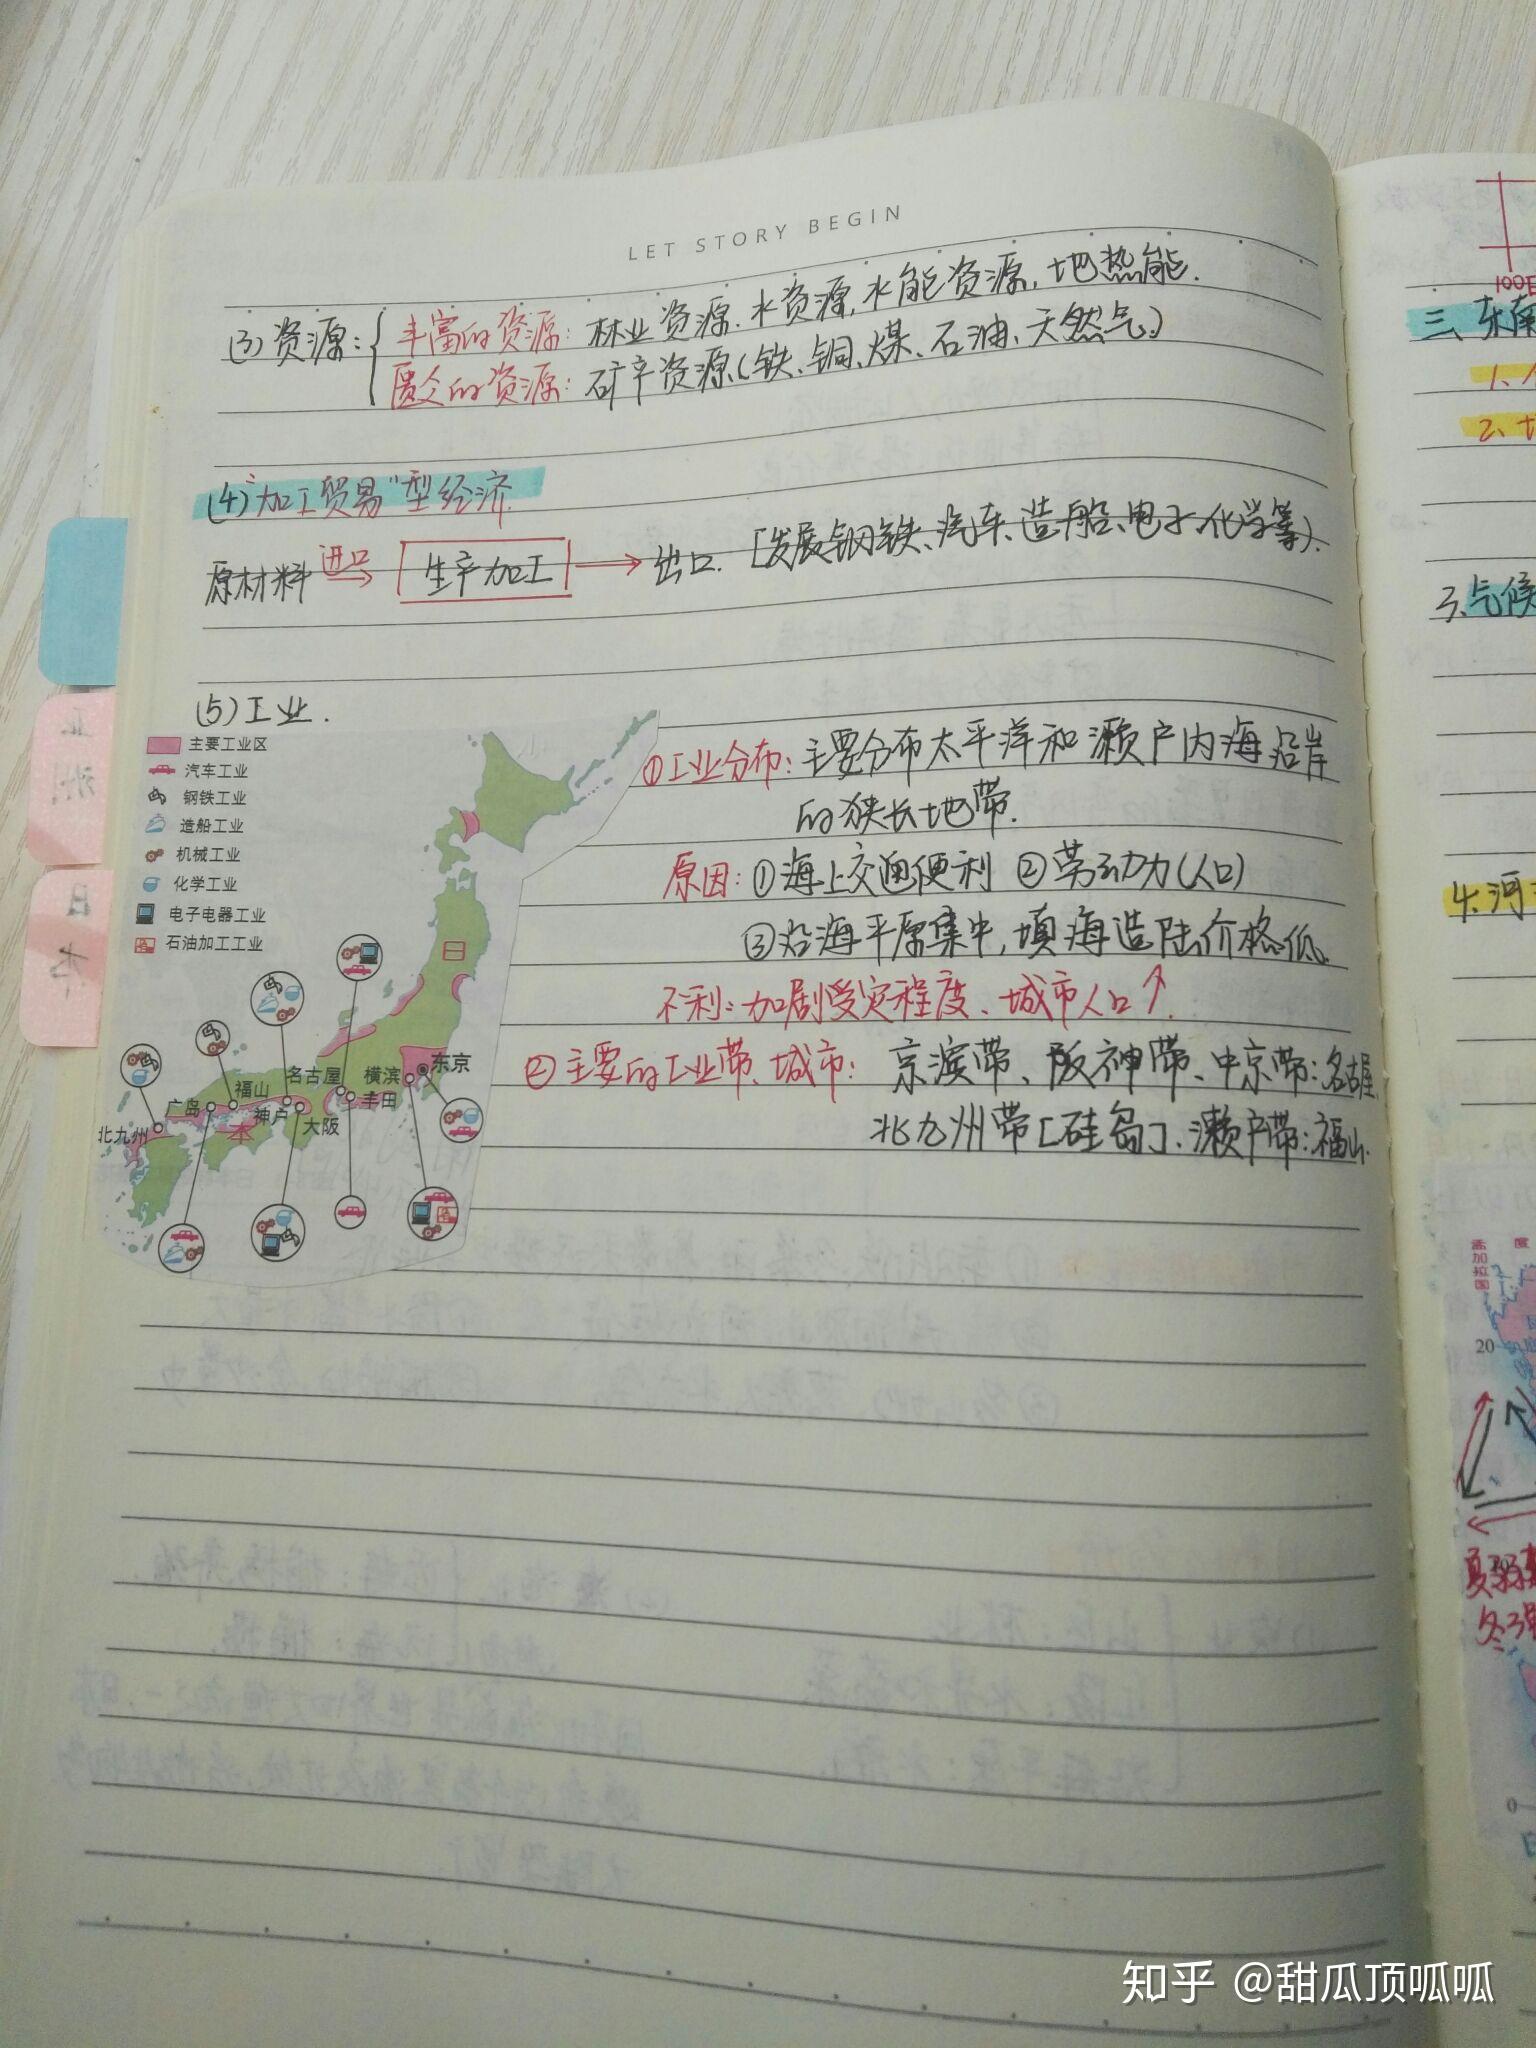 LET STORY BEGIN
(3)资源:{丰富的资源: 林业资源.水资源,水能资源,地热能.
匮乏的资源: 矿产资源(铁、铜、煤、石油、天然气)
(4)"加工贸易"型经济.
原材料 进口→ 生产加工 → 出口. [发展钢铁、汽车、造船、电子、化学等).
(5)工业.
主要工业区
汽车工业
钢铁工业
造船工业
机械工业
化学工业
电子电器工业
石油加工工业
日
本
东京
横滨
名古屋
丰田
福山
神户
大阪
广岛
北九州
①工业分布: 主要分布太平洋和濑户内海沿岸
的狭长地带.
原因: ①海上交通便利 ②劳动力(人口)
③沿海平原集中,填海造陆价格低.
不利: 加剧受灾程度、城市人口↑.
②主要的工业带、城市: 京滨带、阪神带、中京带:名古屋
北九州带[硅岛]、濑户带:福山.
100E
三、东南
1、
2、
3、气候
4、河
孟加拉国
20
0
知乎 @甜瓜顶呱呱